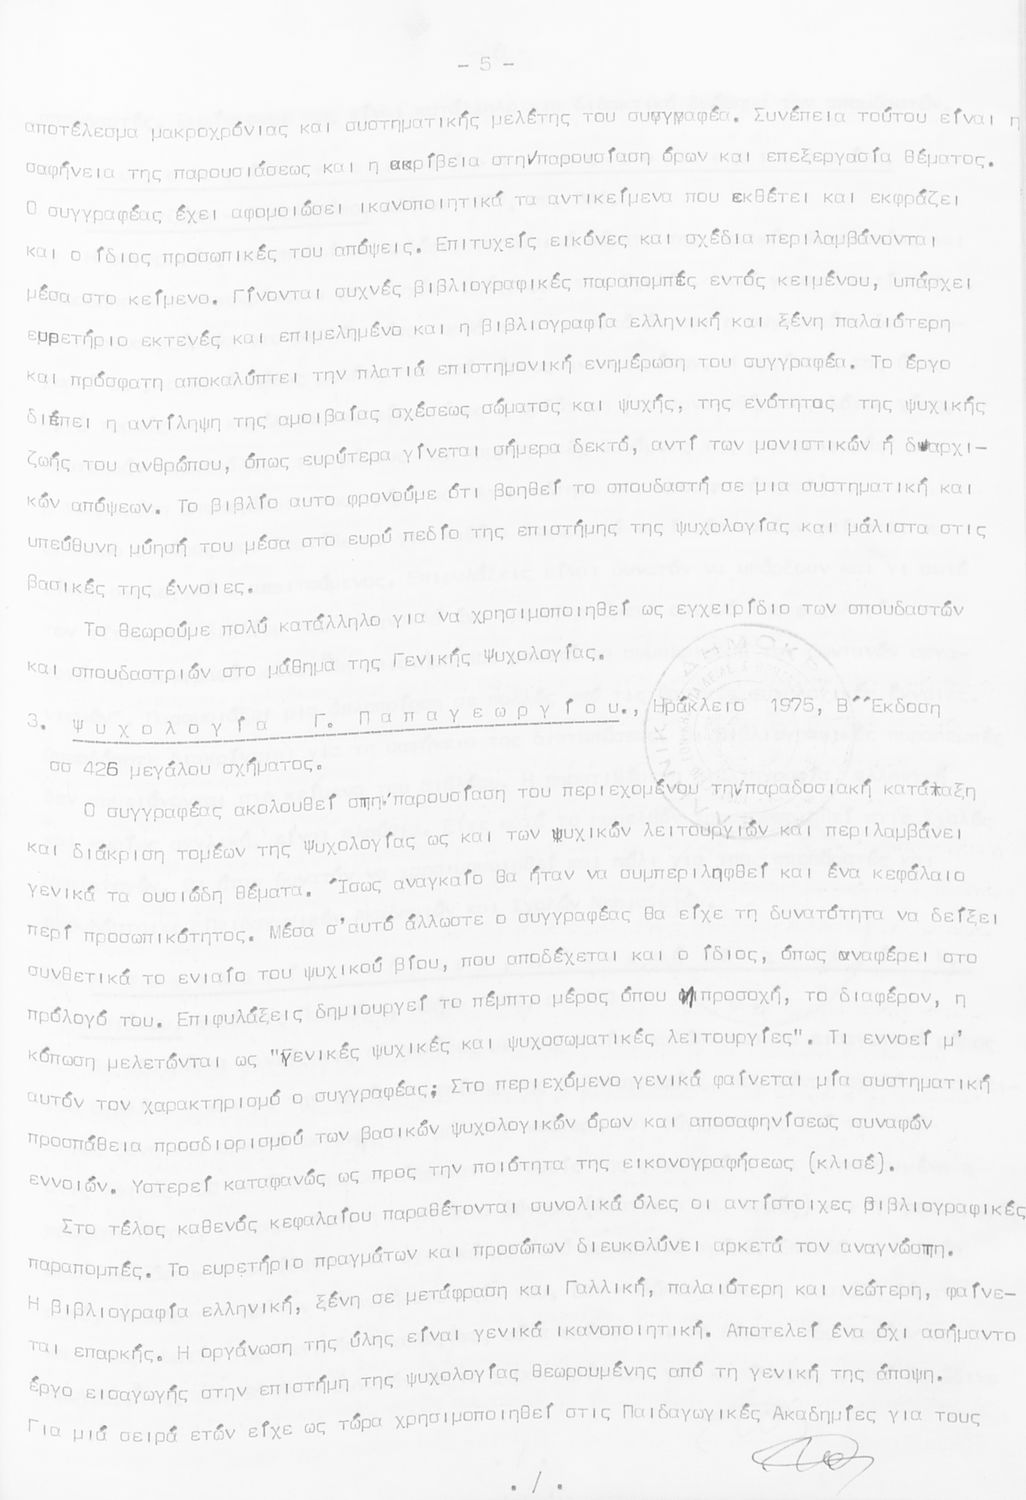 - 5 -
αποτέλεσμα μακροχρόνιας και συστηματικής μελέτης του συγγραφέα. Συνέπεια τούτου είναι η
σαφήνεια της παρουσιάσεως και η ακρίβεια στην παρουσίαση όρων και επεξεργασία θέματος.
Ο συγγραφέας έχει αφομοιώσει ικανοποιητικά τα αντικείμενα που εκθέτει και εκφράζει
και ο ίδιος προσωπικές του απόψεις. Επιτυχείς εικόνες και σχέδια περιλαμβάνονται
μέσα στο κείμενο. Γίνονται συχνές βιβλιογραφικές παραπομπές εντός κειμένου, υπάρχει
ευρετήριο εκτενές και επιμελημένο και η βιβλιογραφία ελληνική και ξένη παλαιότερη
και πρόσφατη αποκαλύπτει την πλατιά επιστημονική ενημέρωση του συγγραφέα. Το έργο
διέπει η αντίληψη της αμοιβαίας σχέσεως σώματος και ψυχής, της ενότητας της ψυχικής
ζωής του ανθρώπου, όπως ευρύτερα γίνεται σήμερα δεκτό, αντί των μονιστικών ή δυαρχι-
κών απόψεων. Το βιβλίο αυτο φρονούμε ότι βοηθεί το σπουδαστή σε μια συστηματική και
υπεύθυνη μύησή του μέσα στο ευρύ πεδίο της επιστήμης της ψυχολογίας και μάλιστα στις
βασικές της έννοιες.
Το θεωρούμε πολύ κατάλληλο για να χρησιμοποιηθεί ως εγχειρίδιο των σπουδαστών
και σπουδαστριών στο μάθημα της Γενικής Ψυχολογίας.
3. Ψυχολογία Γ. Παπαγεωργίου., Ηράκλειο 1975, Β΄ Έκδοση
σσ 426 μεγάλου σχήματος.
Ο συγγραφέας ακολουθεί στην παρουσίαση του περιεχομένου την παραδοσιακή κατάταξη
και διάκριση τομέων της Ψυχολογίας ως και των ψυχικών λειτουργιών και περιλαμβάνει
γενικά τα ουσιώδη θέματα. Ίσως αναγκαίο θα ήταν να συμπεριληφθεί και ένα κεφάλαιο
περί προσωπικότητος. Μέσα σ'αυτό άλλωστε ο συγγραφέας θα είχε τη δυνατότητα να δείξει
συνθετικά το ενιαίο του ψυχικού βίου, που αποδέχεται και ο ίδιος, όπως αναφέρει στο
πρόλογό του. Επιφυλάξεις δημιουργεί το πέμπτο μέρος όπου η προσοχή, το διαφέρον, η
κόπωση μελετώνται ως "γενικές ψυχικές και ψυχοσωματικές λειτουργίες". Τι εννοεί μ'
αυτόν τον χαρακτηρισμό ο συγγραφέας; Στο περιεχόμενο γενικά φαίνεται μία συστηματική
προσπάθεια προσδιορισμού των βασικών ψυχολογικών όρων και αποσαφηνίσεως συναφών
εννοιών. Υστερεί καταφανώς ως προς την ποιότητα της εικονογραφήσεως (κλισέ).
Στο τέλος καθενός κεφαλαίου παραθέτονται συνολικά όλες οι αντίστοιχες βιβλιογραφικές
παραπομπές. Το ευρετήριο πραγμάτων και προσώπων διευκολύνει αρκετά τον αναγνώστη.
Η βιβλιογραφία ελληνική, ξένη σε μετάφραση και Γαλλική, παλαιότερη και νεώτερη, φαίνε-
ται επαρκής. Η οργάνωση της ύλης είναι γενικά ικανοποιητική. Αποτελεί ένα όχι ασήμαντο
έργο εισαγωγής στην επιστήμη της ψυχολογίας θεωρουμένης από τη γενική της άποψη.
Για μιά σειρά ετών είχε ως τώρα χρησιμοποιηθεί στις Παιδαγωγικές Ακαδημίες για τους
. / .